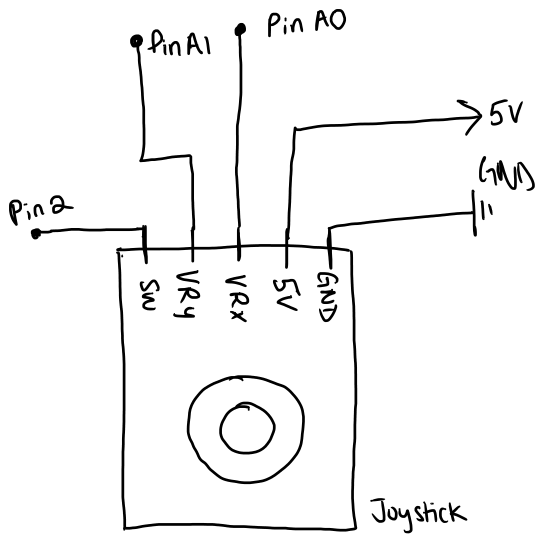 Pin A1
Pin A0
5V
GND
Pin 2
SW
VRy
VRx
5V
GND
Joystick